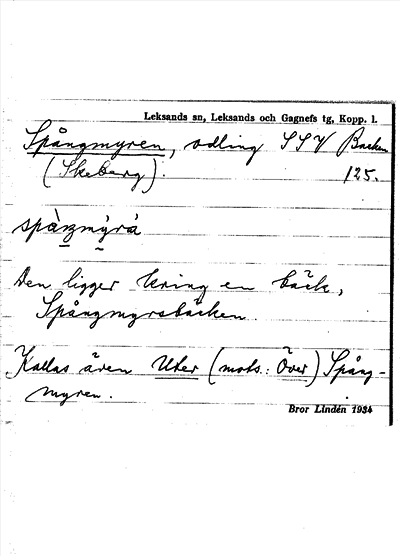 Leksands sn, Leksands och Gagnefs tg, Kopp. l.
Spångmyren, odling SSV Backen
(Skeberg). 125.
spàŋmýrà
Den ligger kring en bäck,
Spångmyrsbäcken.
Kallas även Uter (mots.: Över) Spång-
myren.
Bror Lindén 1934